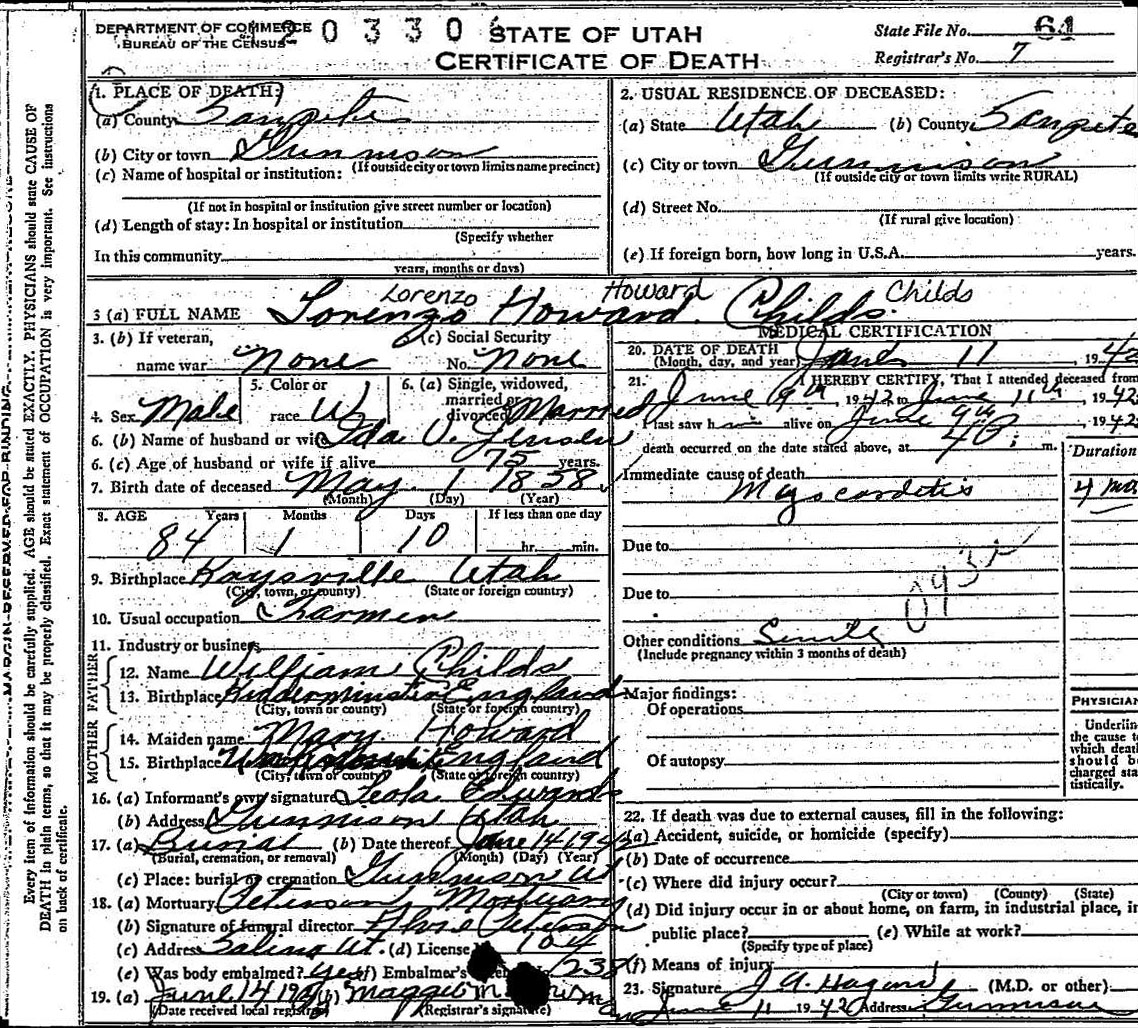 DEPARTMENT OF COMMERCE
BUREAU OF THE CENSUS
2 0 3 3 0
STATE OF UTAH
CERTIFICATE OF DEATH
State File No. 61
Registrar's No. 7
1. PLACE OF DEATH:
(a) County Sanpete
(b) City or town Gunnison
(If outside city or town limits name precinct)
(c) Name of hospital or institution:
(If not in hospital or institution give street number or location)
(d) Length of stay: In hospital or institution
(Specify whether
In this community
years, months or days)
2. USUAL RESIDENCE OF DECEASED:
(a) State Utah (b) County Sanpete
(c) City or town Gunnison
(If outside city or town limits write RURAL)
(d) Street No.
(If rural give location)
(e) If foreign born, how long in U.S.A. years.
Lorenzo Howard Childs
3 (a) FULL NAME Lorenzo Howard Childs
3. (b) If veteran, name war None
(c) Social Security No. None
4. Sex Male
5. Color or race W
6. (a) Single, widowed, married or divorced Married
6. (b) Name of husband or wife Ida V. Jensen
6. (c) Age of husband or wife if alive 75 years.
7. Birth date of deceased May 1 1858
(Month) (Day) (Year)
8. AGE Years Months Days If less than one day
84 1 10 hr. min.
9. Birthplace Kaysville Utah
(City, town, or county) (State or foreign country)
10. Usual occupation
11. Industry or business
FATHER
12. Name William Childs
13. Birthplace Kidderminster England
(City, town or county) (State or foreign country)
MOTHER
14. Maiden name Mary Howard
15. Birthplace England
(City, town or county) (State or foreign country)
16. (a) Informant's own signature Leola Edwards
(b) Address Gunnison Utah
17. (a) Burial (b) Date thereof June 14 1942
(Burial, cremation, or removal) (Month) (Day) (Year)
(c) Place: burial or cremation Gunnison Ut
18. (a) Mortuary Peterson Mortuary
(b) Signature of funeral director Peterson
(c) Address Salina Ut. (d) License 104
(e) Was body embalmed? Yes (f) Embalmer's 238
19. (a) June 14 19 (b) Maggie M.
(Date received local registrar) (Registrar's signature)
MEDICAL CERTIFICATION
20. DATE OF DEATH
(Month, day, and year) June 11, 1942
21. I HEREBY CERTIFY, That I attended deceased from
June 9th, 1942 to June 11th, 1942
I last saw him alive on June 9th, 1942
death occurred on the date stated above, at m.
Duration
Immediate cause of death
Myocarditis
4
Due to
Due to
093
Other conditions Senile
(Include pregnancy within 3 months of death)
Major findings:
Of operations
Of autopsy
PHYSICIAN
Underlin
the cause to
which death
should be
charged sta
tistically.
22. If death was due to external causes, fill in the following:
(a) Accident, suicide, or homicide (specify)
(b) Date of occurrence
(c) Where did injury occur?
(City or town) (County) (State)
(d) Did injury occur in or about home, on farm, in industrial place, in
public place? (e) While at work?
(Specify type of place)
(f) Means of injury
23. Signature J. A. Hagan (M.D. or other)
June 11 1942 Address Gunnison
Every item of information should be carefully supplied. AGE should be stated EXACTLY. PHYSICIANS should state CAUSE OF
DEATH in plain terms, so that it may be properly classified. Exact statement of OCCUPATION is very important. See instructions
on back of certificate.